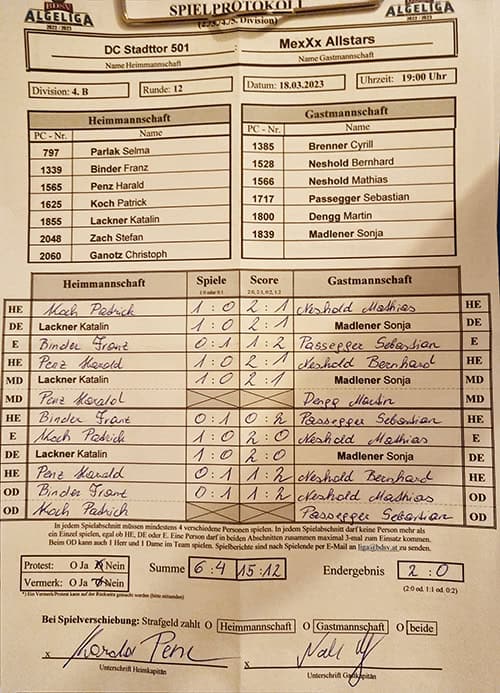 BDSV
ALGELIGA
2022 / 2023
SPIELPROTOKOLL
(2./3./4./5. Division)
ALGELIGA
2022 / 2023
DC Stadttor 501 : MexXx Allstars
Name Heimmannschaft Name Gastmannschaft
Division: 4. B Runde: 12 Datum: 18.03.2023 Uhrzeit: 19:00 Uhr
Heimmannschaft
PC - Nr. Name
797 Parlak Selma
1339 Binder Franz
1565 Penz Harald
1625 Koch Patrick
1855 Lackner Katalin
2048 Zach Stefan
2060 Ganotz Christoph
Gastmannschaft
PC - Nr. Name
1385 Brenner Cyrill
1528 Neshold Bernhard
1566 Neshold Mathias
1717 Passegger Sebastian
1800 Dengg Martin
1839 Madlener Sonja
Heimmannschaft Spiele Score Gastmannschaft
1:0 oder 0:1 2:0, 2:1, 0:2, 1:2
HE Koch Patrick 1 : 0 2 : 1 Neshold Mathias HE
DE Lackner Katalin 1 : 0 2 : 1 Madlener Sonja DE
E Binder Franz 0 : 1 1 : 2 Passegger Sebastian E
HE Penz Harald 1 : 0 2 : 1 Neshold Bernhard HE
MD Lackner Katalin 1 : 0 2 : 1 Madlener Sonja MD
MD Penz Harald Dengg Martin MD
HE Binder Franz 0 : 1 0 : 2 Passegger Sebastian HE
E Koch Patrick 1 : 0 2 : 0 Neshold Mathias E
DE Lackner Katalin 1 : 0 2 : 0 Madlener Sonja DE
HE Penz Harald 0 : 1 1 : 2 Neshold Bernhard HE
OD Binder Franz 0 : 1 1 : 2 Neshold Mathias OD
OD Koch Patrick Passegger Sebastian OD
In jedem Spielabschnitt müssen mindestens 4 verschiedene Personen spielen. In jedem Spielabschnitt darf keine Person mehr als
ein Einzel spielen, egal ob HE, DE oder E. Eine Person darf in beiden Abschnitten zusammen maximal 3-mal zum Einsatz kommen.
Beim OD kann auch 1 Herr und 1 Dame im Team spielen. Spielberichte sind nach Spielende per E-Mail an liga@bdsv.at zu senden.
Protest: O Ja O Nein
Vermerk: O Ja O Nein
Summe 6 : 4 15 : 12 Endergebnis 2 : 0
(2:0 od. 1:1 od. 0:2)
*) Ein Vermerk/Protest kann auf der Rückseite gemacht werden (bitte ankreuzen)
Bei Spielverschiebung: Strafgeld zahlt O Heimmannschaft O Gastmannschaft O beide
x Harald Penz x
Unterschrift Heimkapitän Unterschrift Gastkapitän